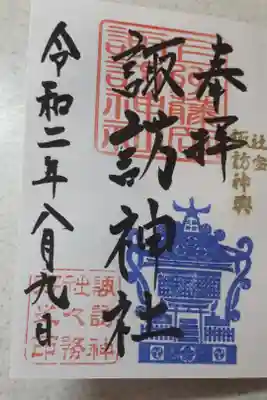 奉拝
社宝
諏訪神輿
諏訪神社
令和二年八月九日
諏訪神
社々務